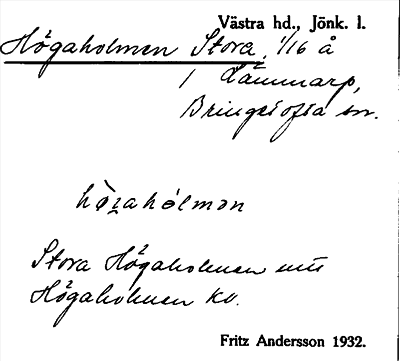 Västra hd., Jönk. l.
Högaholmen Stora, 1/16 å
1 Lammarp,
Bringetofta sn.
hö̀gahólmən
Stora Högaholmen mtl
Högaholmen kv.
Fritz Andersson 1932.